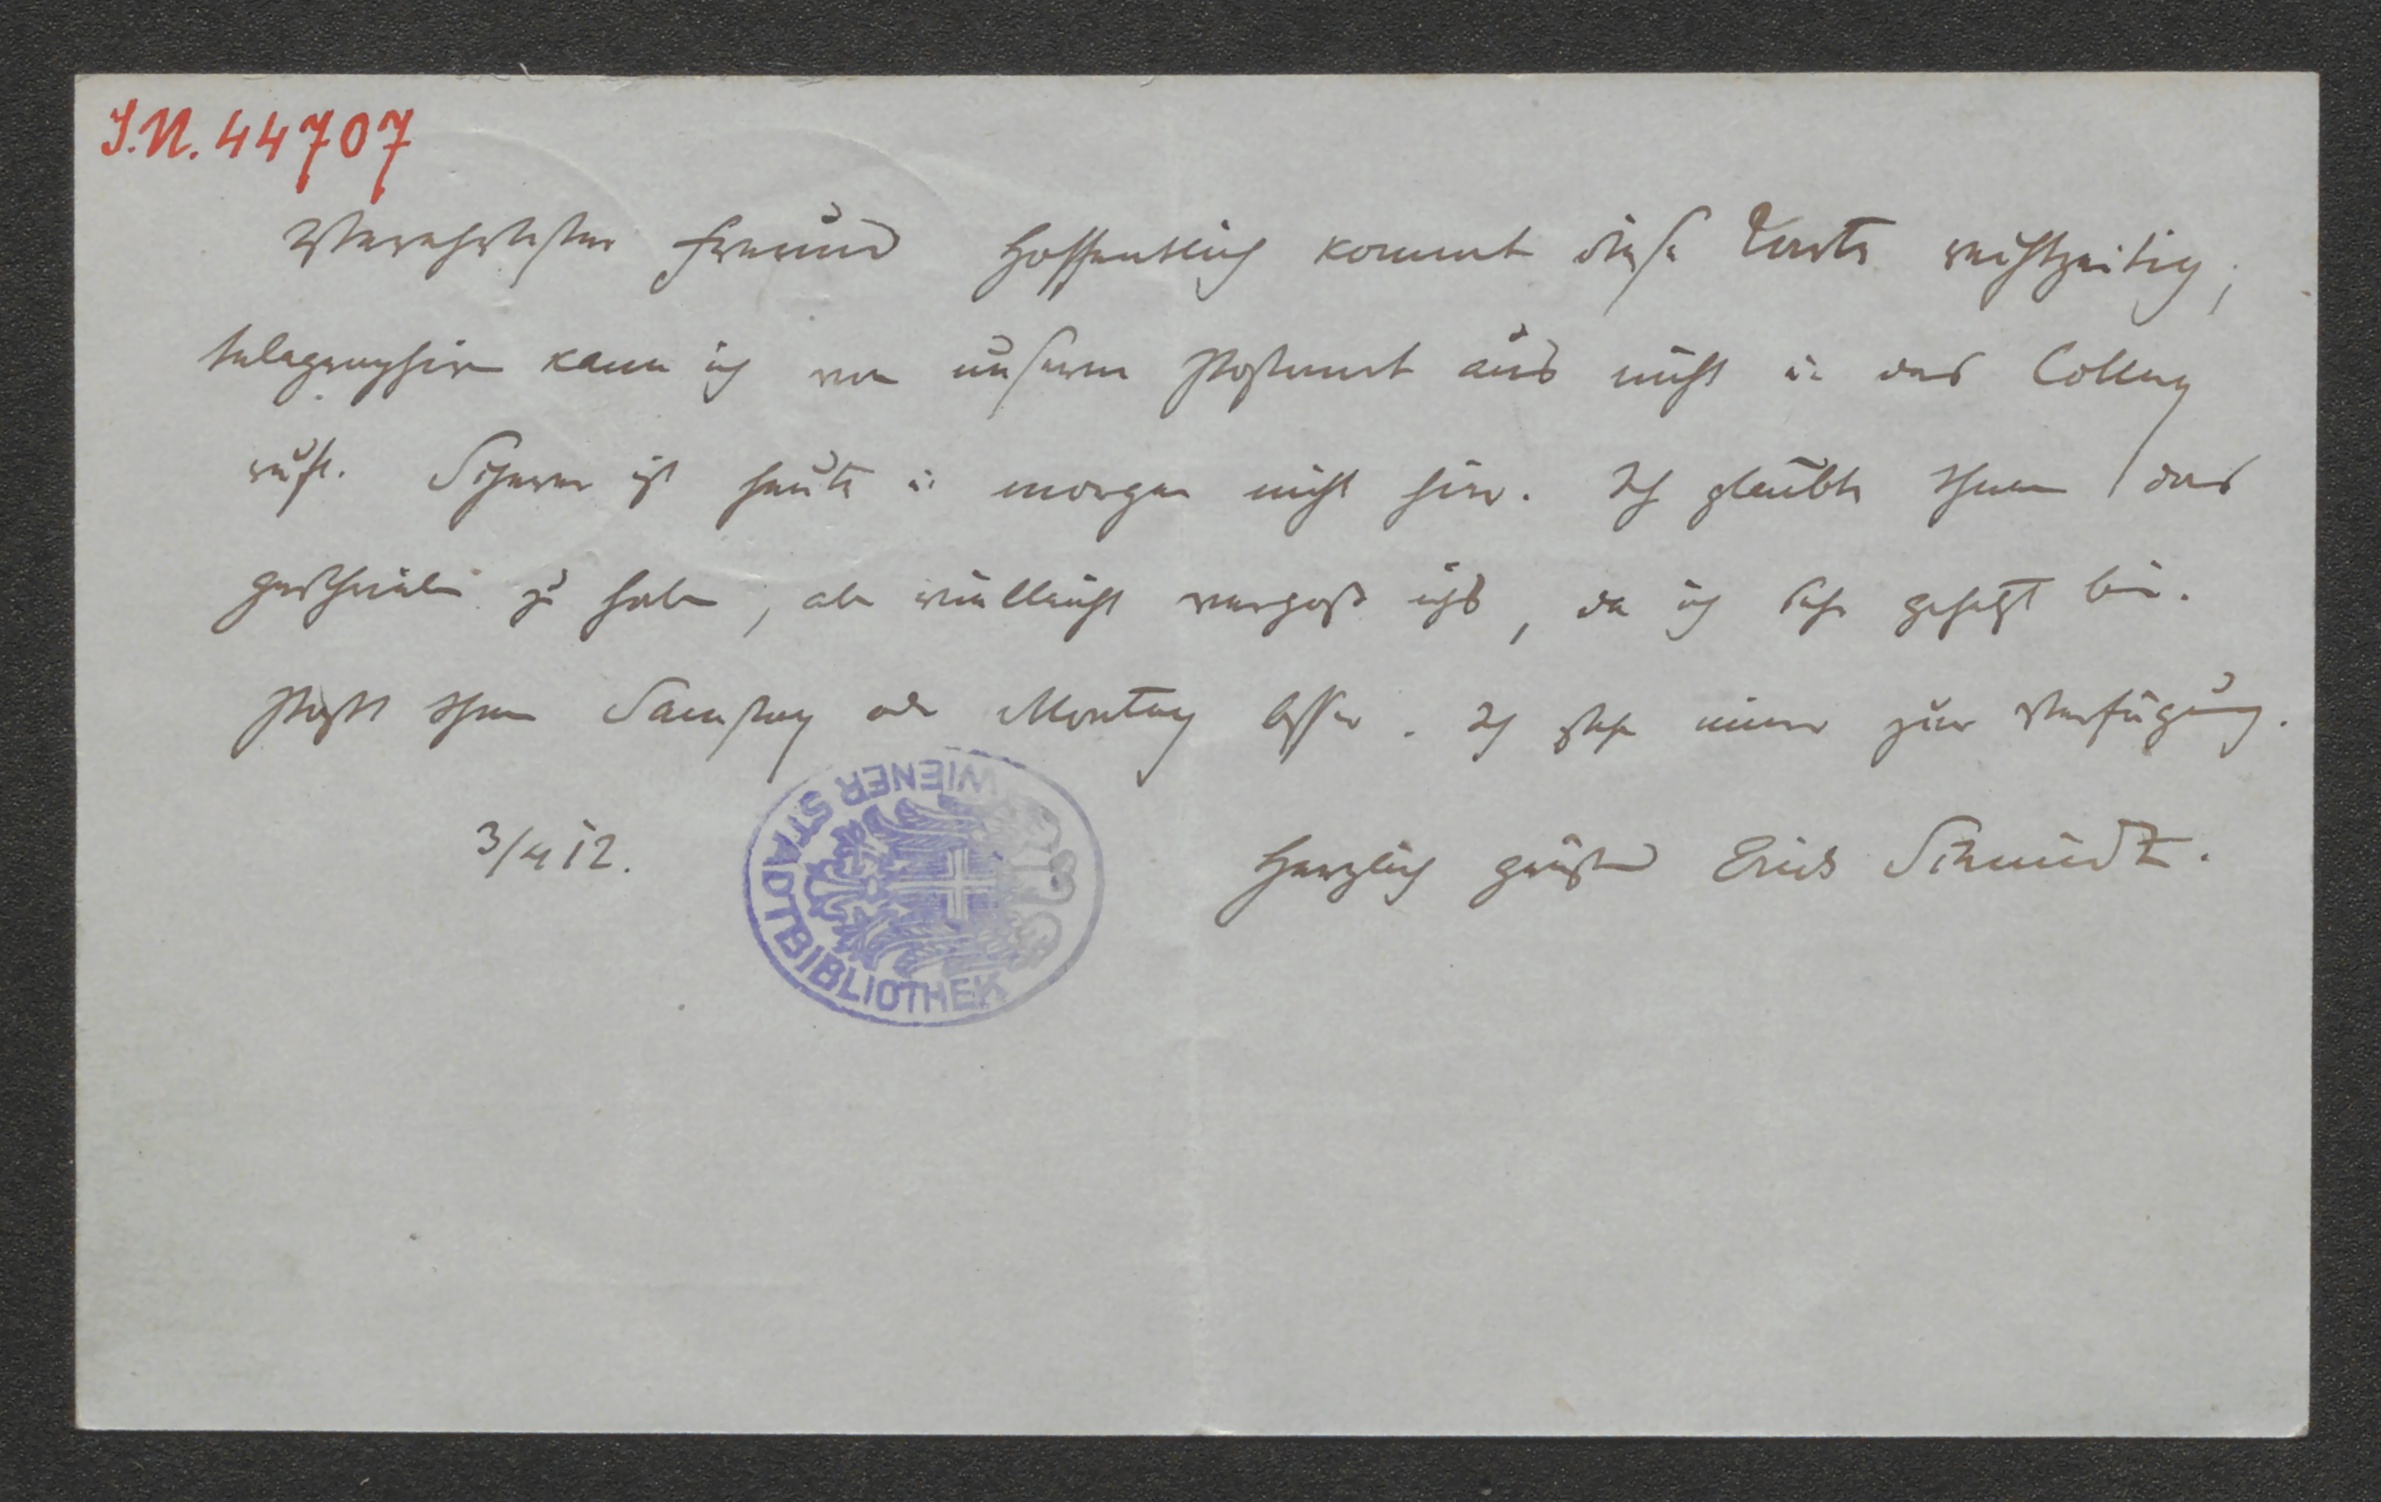 I.N. 44707
Verehrtester Freund Hoffentlich kommt diese Karte rechtzeitig;
telegraphiren kann ich von unserem Postamt aus nicht u. das Colleg
ruft. Scherer ist heute u. morgen nicht hier. Ich glaubte Ihnen das
geschrieben zu haben, aber vielleicht vergaß ichs, da ich sehr gehetzt bin.
Paßt Ihnen Samstag oder Montag besser. Ich stehe immer zur Verfügung.
Herzlich grüßend Erich Schmidt.
WIENER STADTBIBLIOTHEK